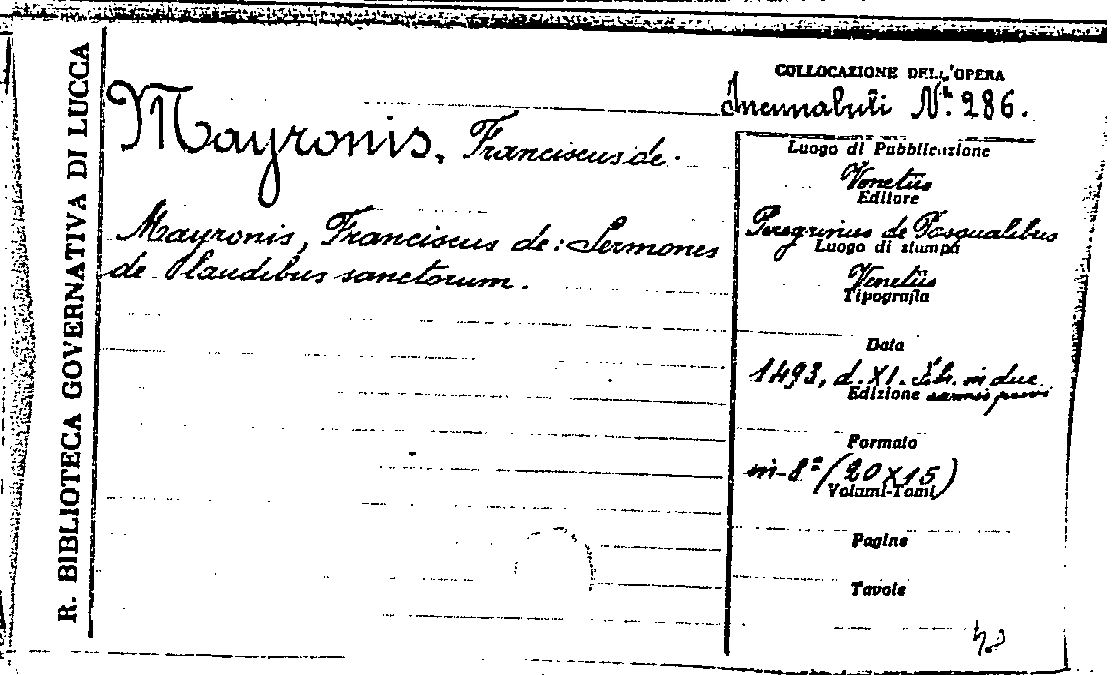 R. BIBLIOTECA GOVERNATIVA DI LUCCA
Mayronis, Franciscus de.
Mayronis, Franciscus de: Sermones
de laudibus sanctorum.
COLLOCAZIONE DELL'OPERA
Incunabuli N.º 286.
Luogo di Pubblicazione
Venetiis
Editore
Peregrinus de Pasqualibus
Luogo di stampa
Venetiis
Tipografia
Data
1493, d. XI. in due
Edizione
Formato
in-8º (20X15)
Volumi-Tomi
Pagine
Tavole